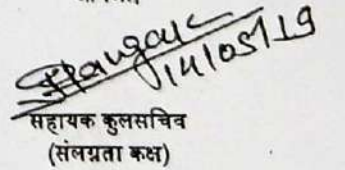 14/05/19
सहायक कुलसचिव
(संलग्नता कक्ष)